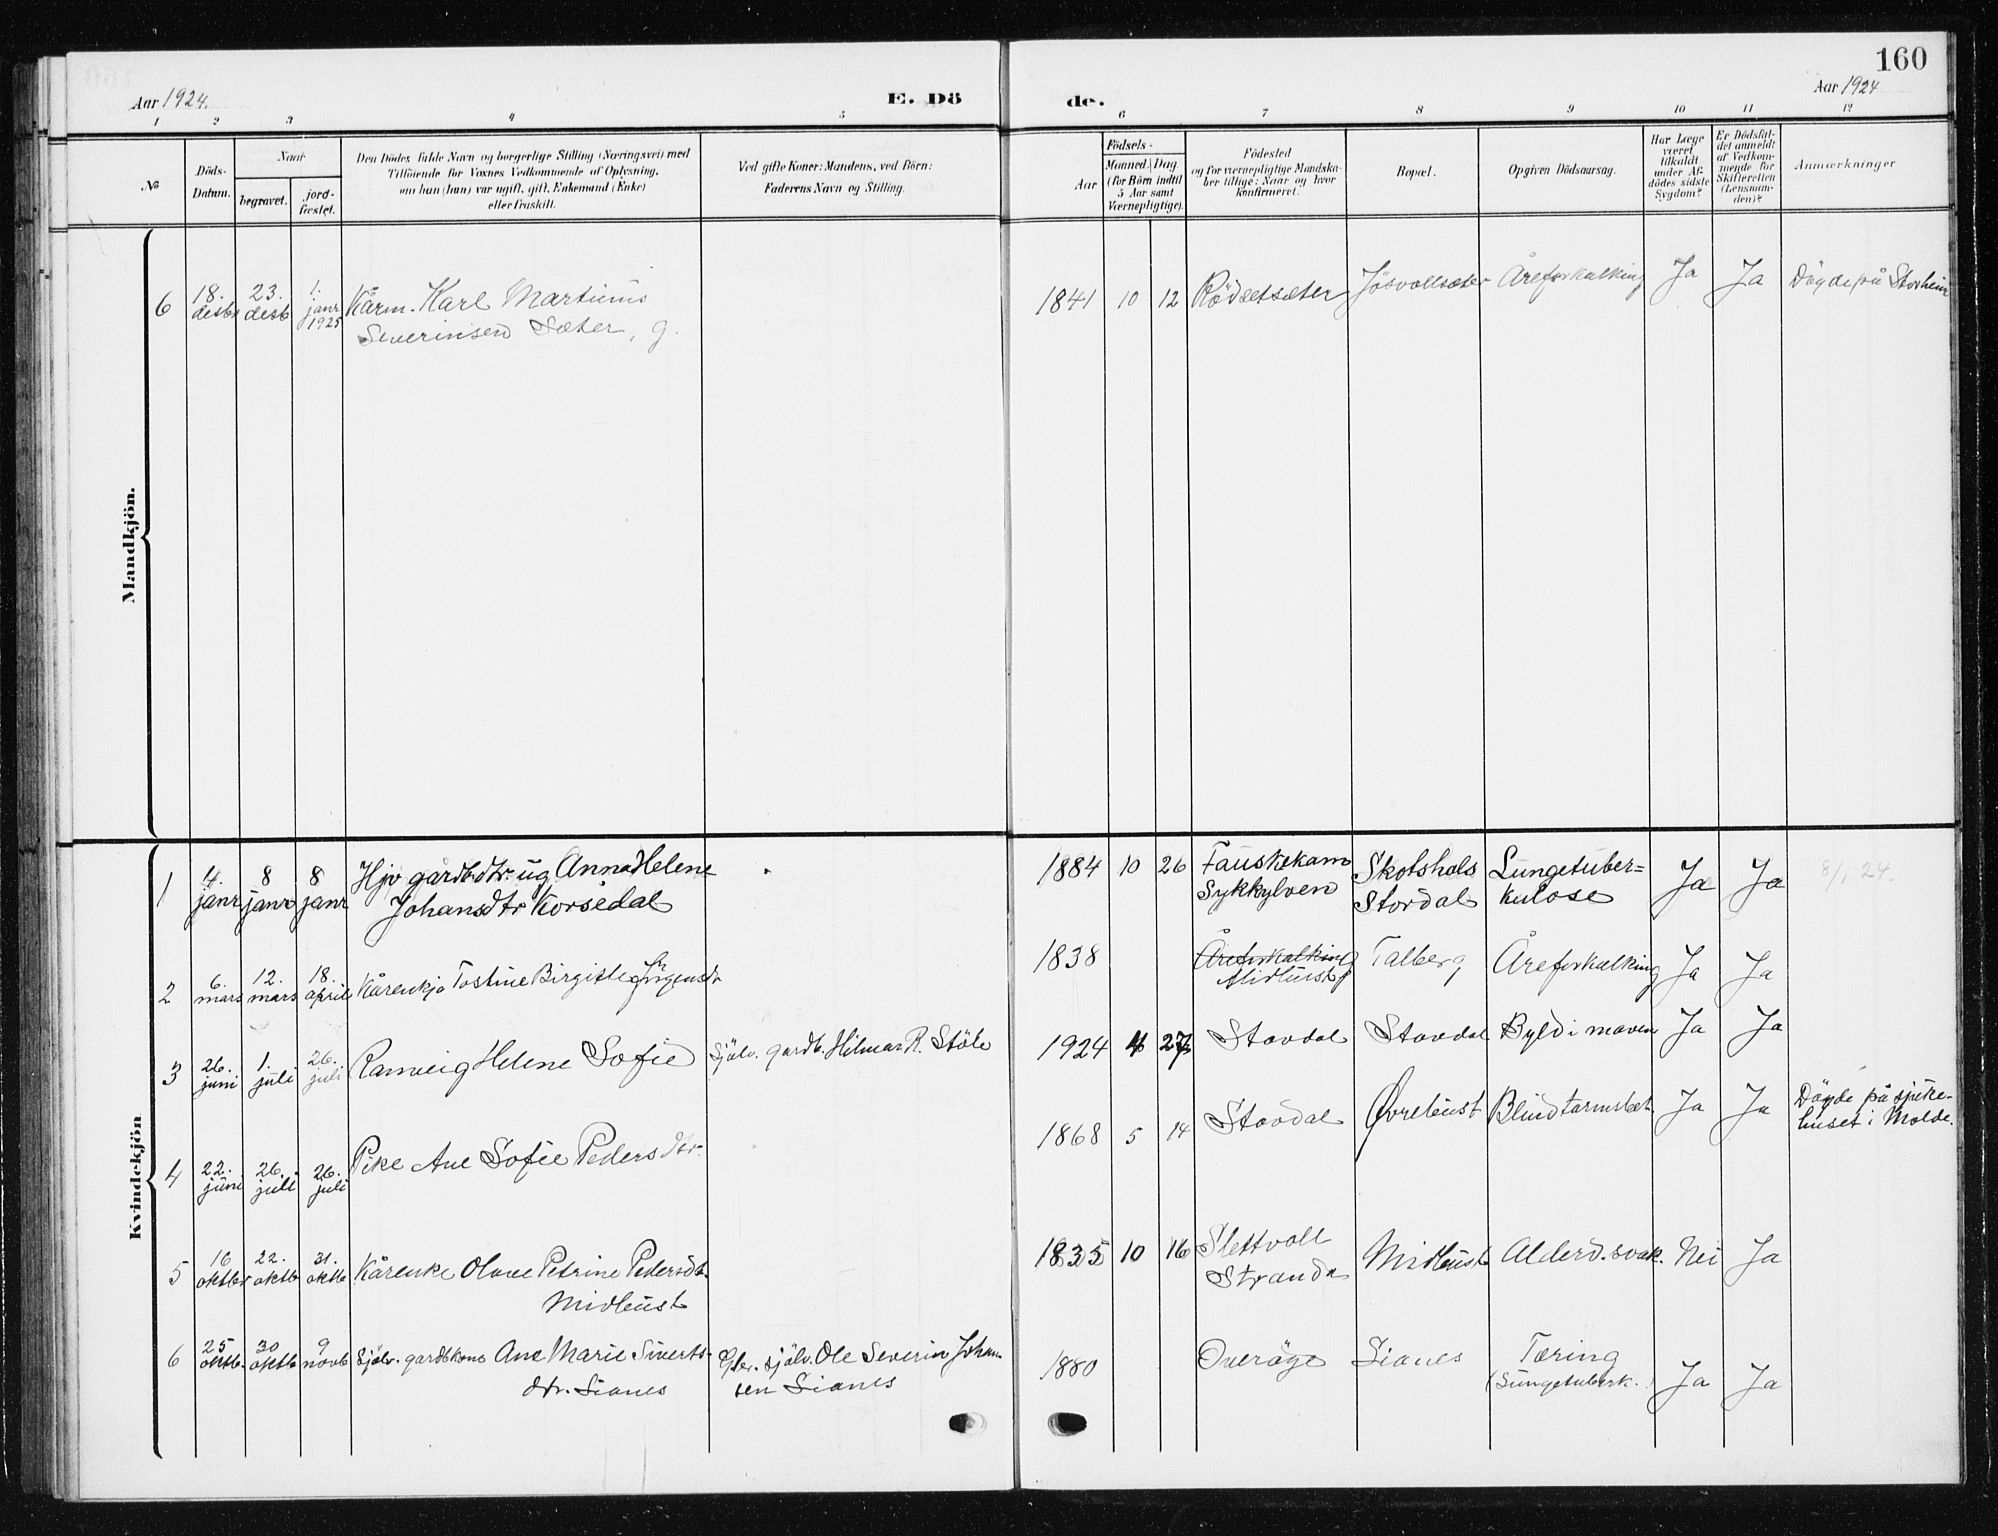 160
Aar 1924.
E. Dö
de.
Aar 1924
1 2 3 4 5 6 7 8 9 10 11 12
No
Döds-
Datum.
Naar
begravet.
jord-
fæstet.
Den Dödes fulde Navn og borgerlige Stilling (Næringsvei) med
Tilföiende for Voxnes Vedkommende af Oplysning,
om han (hun) var ugift, gift, Enkemand (Enke)
eller fraskilt.
Ved gifte Koner: Mandens, ved Börn:
Faderens Navn og Stilling.
Födsels-
Aar
Maaned.
Dag
(for Börn indtil
5 Aar samt
Værnepligtige).
Födested
og for værnepligtige Mandska-
ber tillige: Naar og hvor
konfirmeret.
Bopæl.
Opgiven Dödsaarsag.
Har Læge
været
tilkaldt
under Af-
dödes sidste
Sygdom?
Er Dödsfal-
det anmeldt
af Vedkom-
mende for
Skifteretten
(Lensman-
den)?
Anmærkninger
Mandkjön.
6 18. desbr 23. desb 1. janr 1925 Kårm. Karl Martinus
Severinsen Sæter, g.
1841 10 12 Rödsetsæter Jösvollsæter Åreforkalking Ja Ja Döyde på Storheim
Kvindekjön
1 4. janr 8 janr 8 janr Hjv gårdb.dtr. ug Anna Helene
Johansdtr Korsedal
1884 10 26 Fauskekam
Sykkylven
Skotshols
Stordal
Lungetuber=
kulose
Ja Ja 8/1 24.
2 6. mars 12. mars 18. april Kårenkja Tostine Birgitte Jörgensdtr
1838 Åreforkalking
Midtunst
Talberg Åreforkalking Ja Ja
3 26. juni 1. juli 26. juli Ranveig Helene Sofie Sjölv. gardb. Hilmar R. Stöle
1924 4 27 Stordal Stordal Byld i maven Ja Ja
4 22. juni 26. juli 26. juli Pike Ane Sofie Pedersdtr.
1868 5 14 Stordal Øvreünst Blindtarmsbet. Ja Ja Döyde på sjuke-
huset i Molde.
5 16 oktbr 22. oktb 31. oktb Kårenke Olave Petrine Pedersdtr.
Midtünst
1835 10 16 Slettvoll
Stranda
Midtünst Alderd.svak. Nei Ja
6 25 oktb. 30 oktb 9 novb Sjölv. gardbkone Ane Marie Siverts-
dtr. Lianes
Gbr. sjölv. Ole Severin Johan-
sen Lianes
1880 Overöye Lianes Tæring
(Lungetuberk.)
Ja Ja